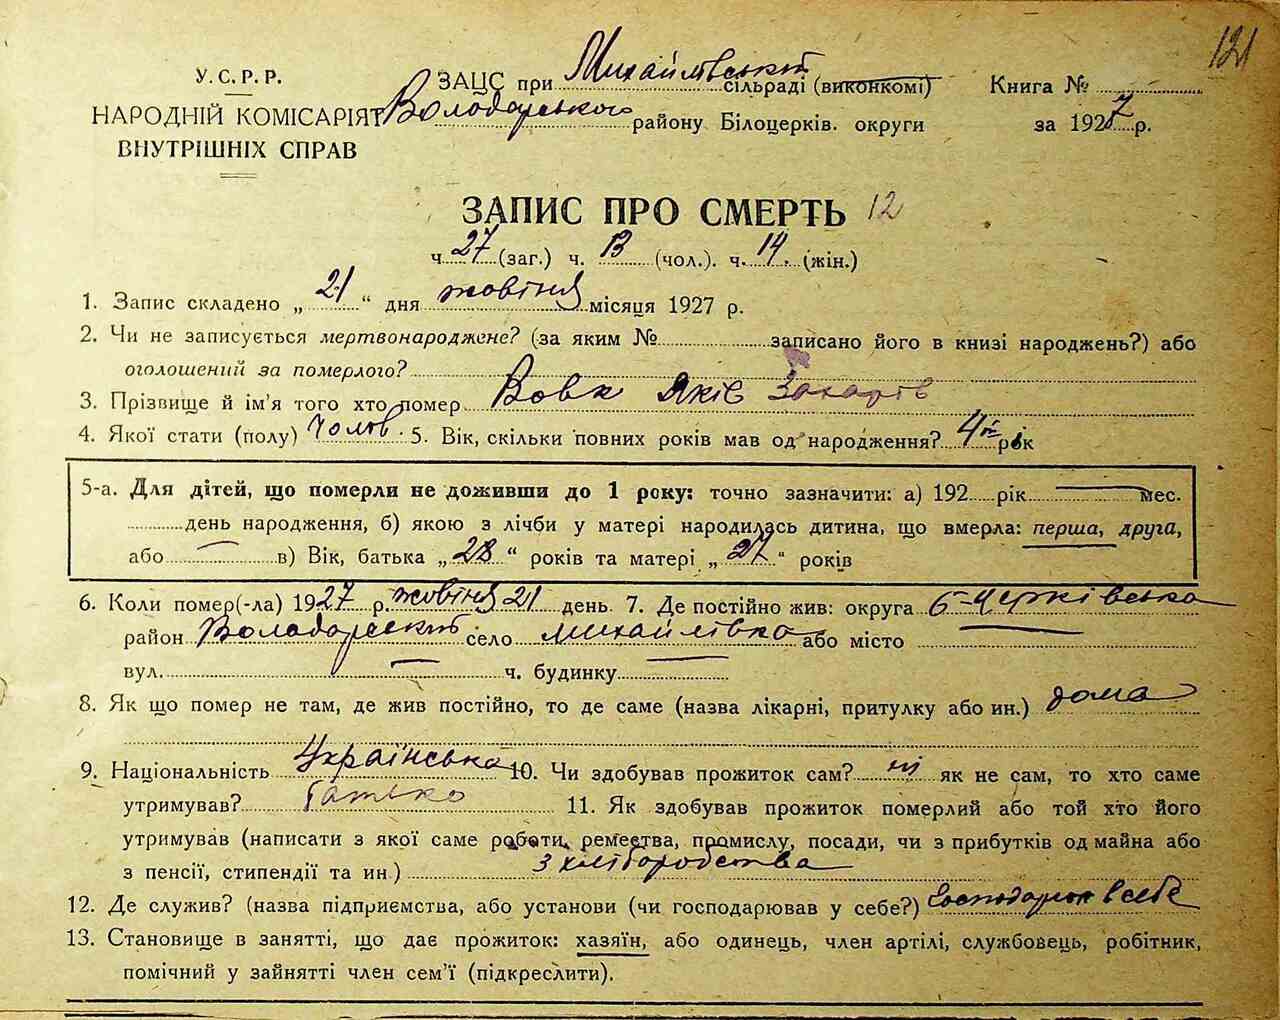 121
У.С.Р.Р.
НАРОДНІЙ КОМІСАРІЯТ
ВНУТРІШНІХ СПРАВ
ЗАЦС при Михайлівській сільраді (виконкомі)
Володарського району Білоцерків. округи
Книга №
за 1927 р.
ЗАПИС ПРО СМЕРТЬ 12
ч. 27 (заг.) ч. 13 (чол.). ч. 14 (жін.)
1. Запис складено „ 21 “ дня жовтня місяця 1927 р.
2. Чи не записується мертвонароджене? (за яким № записано його в книзі народжень?) або
оголошений за померлого?
3. Прізвище й ім'я того хто помер Вовк Яків Захарів
4. Якої стати (полу) Чолов. 5. Вік, скільки повних років мав од народження? 4 рік
5-а. Для дітей, що померли не доживши до 1 року: точно зазначити: а) 192 рік мес.
день народження, б) якою з лічби у матері народилась дитина, що вмерла: перша, друга,
або в) Вік, батька „ 28 “ років та матері „ 27 “ років
6. Коли помер(-ла) 1927 р. жовтня 21 день. 7. Де постійно жив: округа Б-Церківська
район Володарський село Михайлівка або місто
вул. ч. будинку
8. Як що помер не там, де жив постійно, то де саме (назва лікарні, притулку або ин.) дома
9. Національність Українська 10. Чи здобував прожиток сам? ні як не сам, то хто саме
утримував? Батько 11. Як здобував прожиток померлий або той хто його
утримував (написати з якої саме роботи, ремества, промислу, посади, чи з прибутків од майна або
з пенсії, стипендії та ин.) з хліборобства
12. Де служив? (назва підприємства, або установи (чи господарював у себе?) господарює в себе
13. Становище в занятті, що дає прожиток: хазяїн, або одинець, член артілі, службовець, робітник,
помічний у зайнятті член сем'ї (підкреслити).